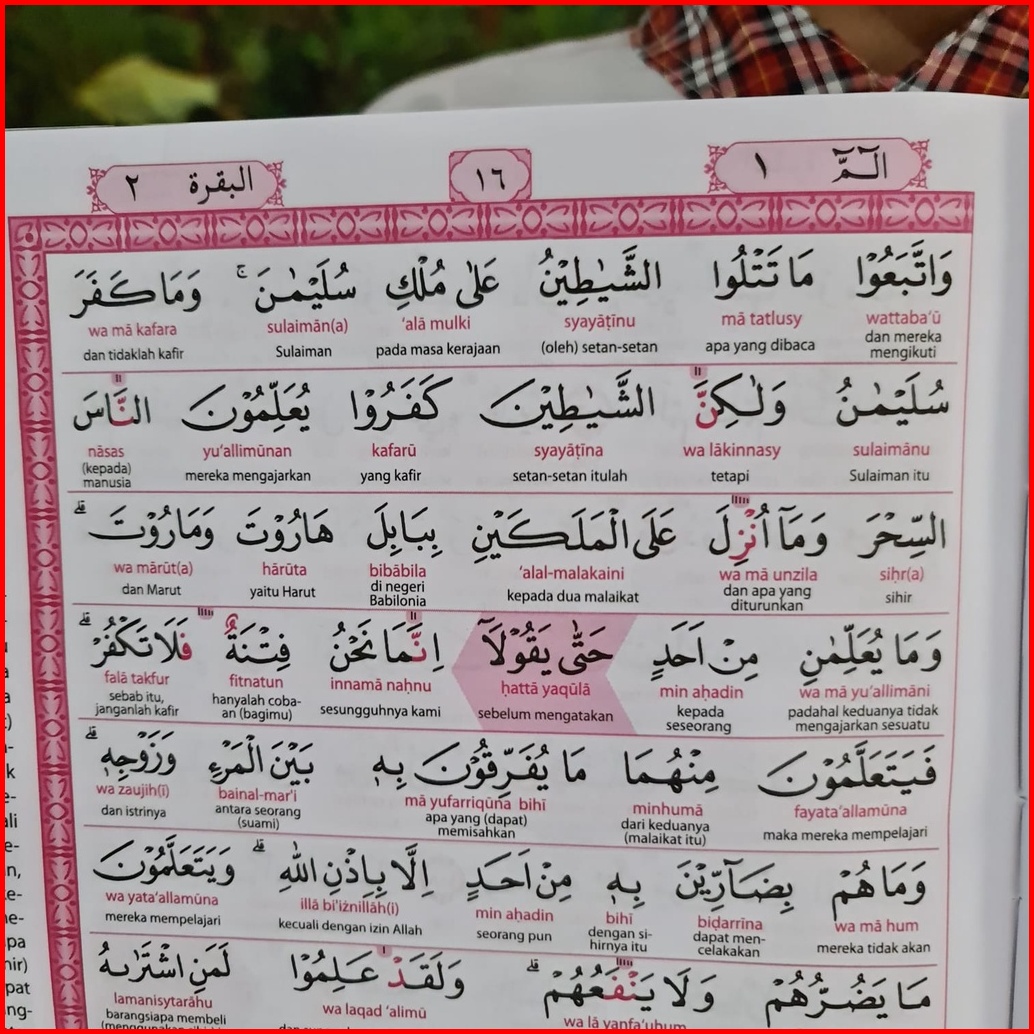 الٓمّٓ ١
١٦
البقرة ٢
وَاتَّبَعُوْا مَا تَتْلُوا الشَّيٰطِيْنُ عَلٰى مُلْكِ سُلَيْمٰنَ ۚ وَمَا كَفَرَ
wattaba'ū mā tatlusy syayāṭīnu 'alā mulki sulaimān(a) wa mā kafara
dan mereka mengikuti apa yang dibaca (oleh) setan-setan pada masa kerajaan Sulaiman dan tidaklah kafir
سُلَيْمٰنُ وَلٰكِنَّ الشَّيٰطِيْنَ كَفَرُوْا يُعَلِّمُوْنَ النَّاسَ
sulaimānu wa lākinnasy syayāṭīna kafarū yu'allimūnan nāsas
Sulaiman itu tetapi setan-setan itulah yang kafir mereka mengajarkan (kepada) manusia
السِّحْرَ وَمَآ اُنْزِلَ عَلَى الْمَلَكَيْنِ بِبَابِلَ هَارُوْتَ وَمَارُوْتَ ۗ
siḥr(a) wa mā unzila 'alal-malakaini bibābila hārūta wa mārūt(a)
sihir dan apa yang diturunkan kepada dua malaikat di negeri Babilonia yaitu Harut dan Marut
وَمَا يُعَلِّمٰنِ مِنْ اَحَدٍ حَتّٰى يَقُوْلَآ اِنَّمَا نَحْنُ فِتْنَةٌ فَلَا تَكْفُرْ ۗ
wa mā yu'allimāni min aḥadin ḥattā yaqūlā innamā naḥnu fitnatun falā takfur
padahal keduanya tidak mengajarkan sesuatu kepada seseorang sebelum mengatakan sesungguhnya kami hanyalah coba-an (bagimu) sebab itu, janganlah kafir
فَيَتَعَلَّمُوْنَ مِنْهُمَا مَا يُفَرِّقُوْنَ بِهٖ بَيْنَ الْمَرْءِ وَزَوْجِهٖ ۗ
fayata'allamūna minhumā mā yufarriqūna bihī bainal-mar'i wa zaujih(ī)
maka mereka mempelajari dari keduanya (malaikat itu) apa yang (dapat) memisahkan antara seorang (suami) dan istrinya
وَمَا هُمْ بِضَاۤرِّيْنَ بِهٖ مِنْ اَحَدٍ اِلَّا بِاِذْنِ اللّٰهِ ۗ وَيَتَعَلَّمُوْنَ
wa mā hum biḍarrīna bihī min aḥadin illā bi'iżnillāh(i) wa yata'allamūna
mereka tidak akan dapat men-celakakan dengan si-hirnya itu seorang pun kecuali dengan izin Allah mereka mempelajari
مَا يَضُرُّهُمْ وَلَا يَنْفَعُهُمْ ۗ وَلَقَدْ عَلِمُوْا لَمَنِ اشْتَرٰىهُ
wa lā yanfa'uhum wa laqad 'alimū lamanisytarāhu
barangsiapa membeli